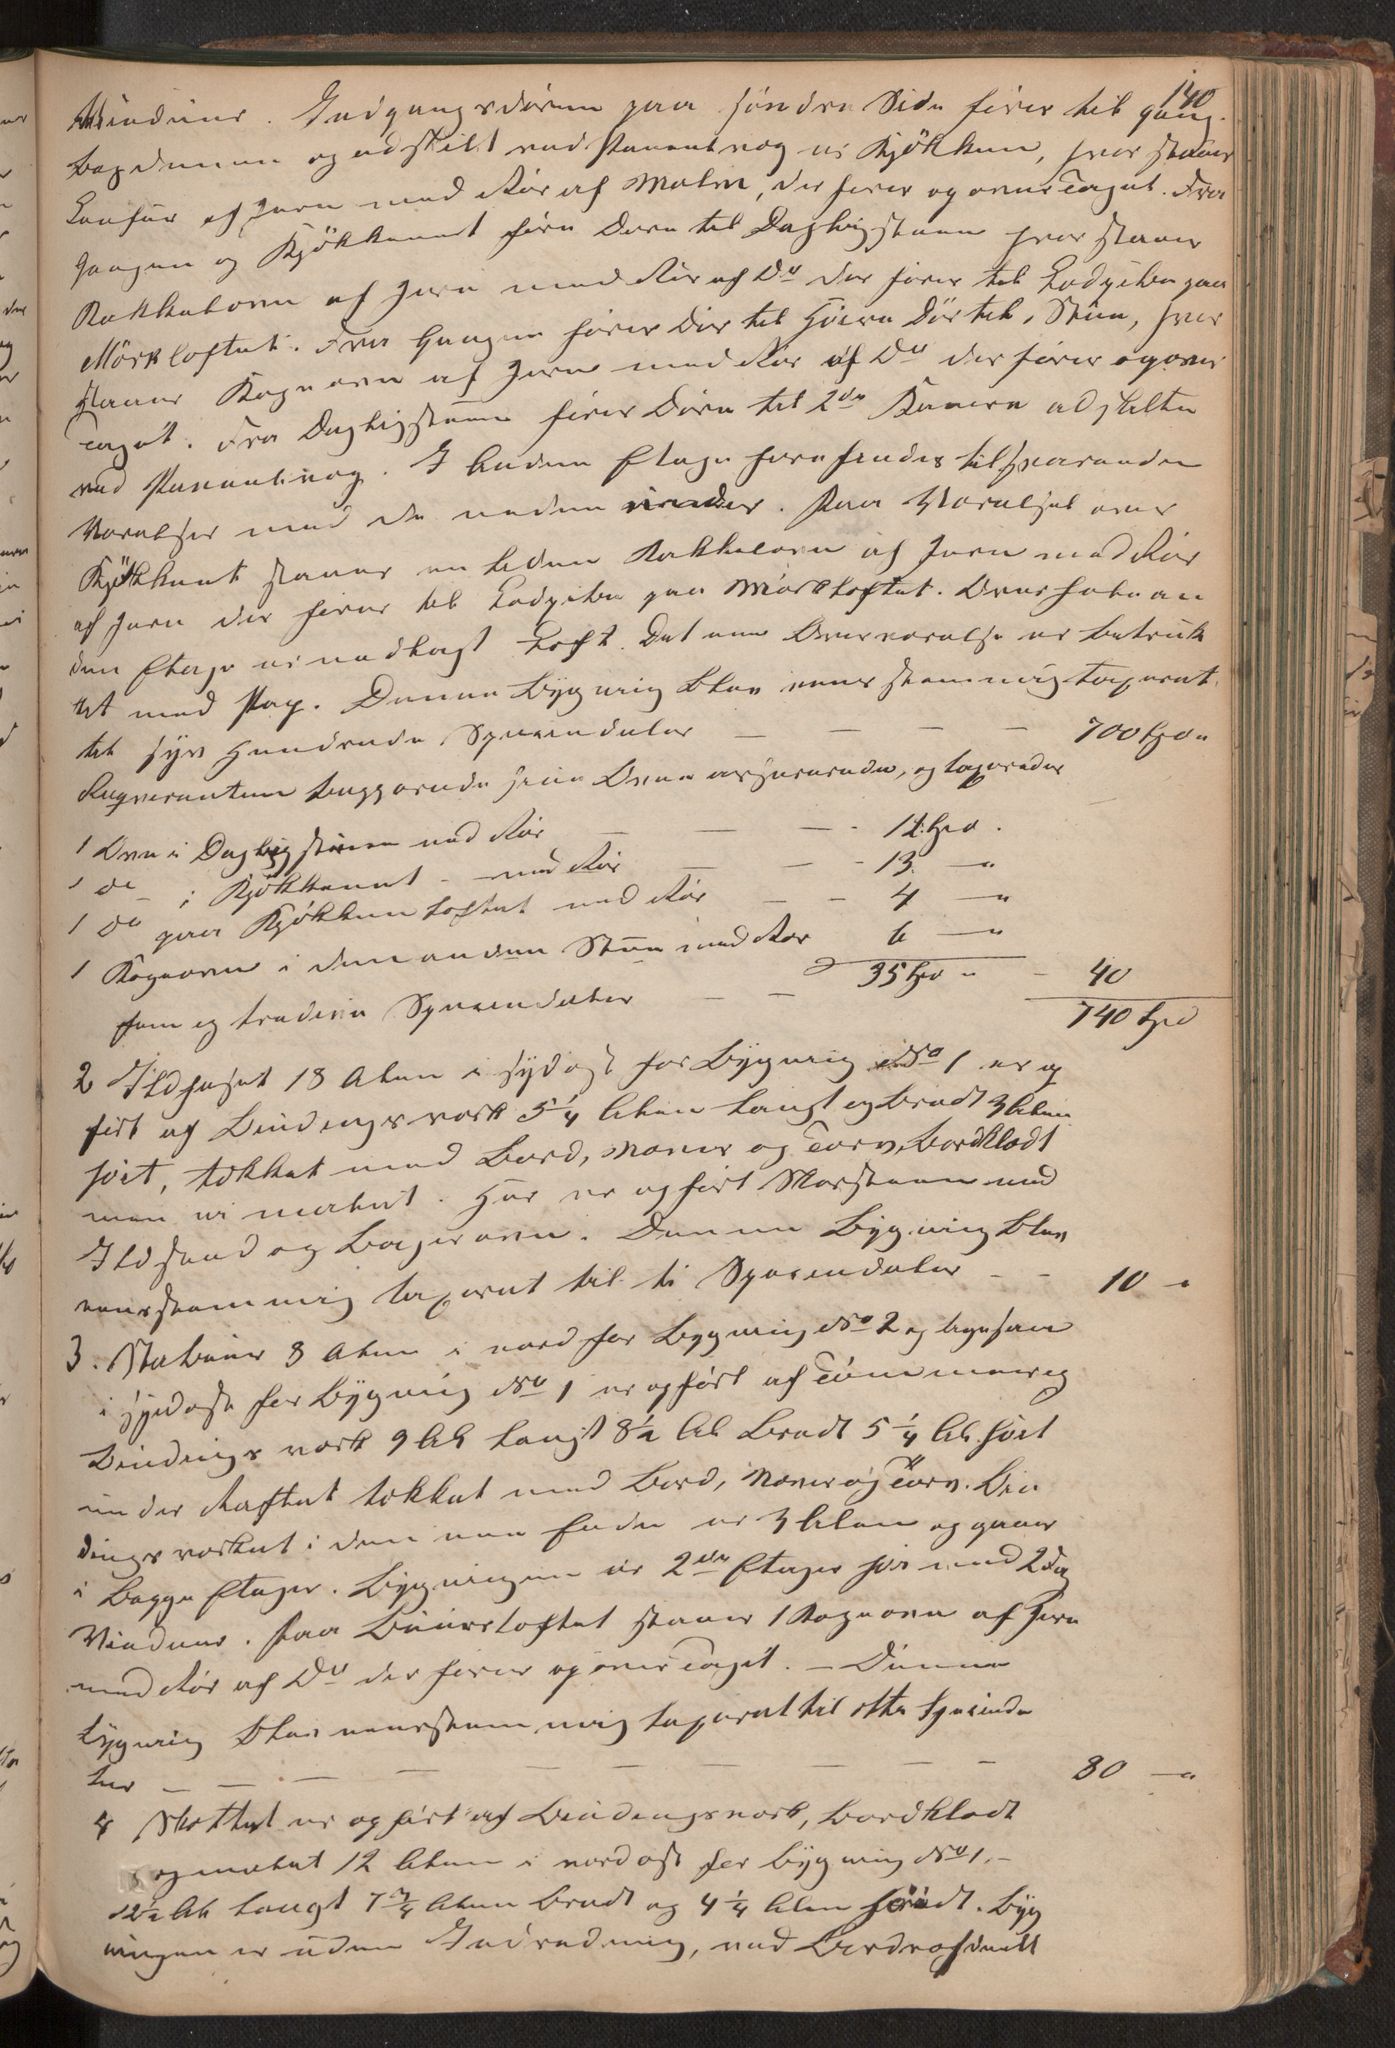 140
Vinduer. Indgangsdøren paa søndre Side fører til gang.
bagdennem og adskilt ved Panelvæg er Kjøkken, hvor staaer
Comfur af Jern med Rør af Malm, der fører op over Taget. Fra
Gangen og Kjøkkenet føre Døre til Dagligstuen hvor staaer
Kakkelovn af Jern med Rør af Do der fører til Ledpibe paa
Mørkloftet. Fra Gangen fører Dør til Høire Dør til, Stue, hvor
staaer Kogeovn af Jern med Rør af Do der fører op over
Taget. Fra Dagligstuen fører Døre til 2de Kamere adskilte
ved Panelvæg. I Anden Etage forefindes tilsvarende
Værelser med de neden under. Paa Værelset over
Kjøkkenet staaer en liden Kakkelovn af Jern med Rør
af Jern der fører til Ledpibe paa Mørkloftet. Over anden
den Etage er nedlagt Loft. Det ene Overværelse er betruk
ket med Pap. Denne Bygning blev eenstemmig taxeret
til syv Hundrede Speciedaler — — — — 700 Spd "
Reqvirenten begjærede sine Ovne assurerede, og taxeredes
1 Ovn i Dagligstuen med Rør — — — 12 Spd.
1 do — i Kjøkkenet — med Rør — — — 13 — "
1 Do paa Kjøkkenloftet med Rør — — 4 — "
1 Kogeovn i den anden Stue med Rør 6 — "
35 Spd " — 40
fem og tredive Speciedaler — — 740 Spd
2 Ildhuset 18 Alen i sydost for Bygning No 1 er op
ført af Bindingsværk 5 1/4 Alen langt og bredt 3 Alen
høit, tækket med Bord, Næver og Torv, bordklædt
men ei malet. Her er opført Skorsteen med
Ildsted og Bagerovn. Denne Bygning blev
eenstemmig taxeret til ti Speciedaler — — 10 — "
3. Stabuur 8 Alen i nord for Bygning No 2 og ligesaa
i sydost for Bygning No 1 er opført af Tømmer og
Bindingsværk 9 Al langt 8 1/2 Al bredt 5 1/4 Al. høit
under Raftet tækket med Bord, Næver og Torv. Bin
dingsværket i den ene Ende er 3 Alen og gaaer
i begge Etager. Bygningen er 2de Etager høi med 2 Fag
Vinduer. Paa Buursloftet staaer 1 Kogeovn af Jern
med Rør af Do der fører op over Taget. — Denne
Bygning blev eenstemmig taxeret til otti Speciеda
ler — — — — — — — — — 80 — "
4 Skottet er opført af Bindingsværk, bordklædt
og malet 12 Alen i nordost for Bygning No 1. —
12 1/2 Al langt 7 3/4 Alen bredt og 4 1/4 Alen høit. Byg
ningen er uden Indredning, med